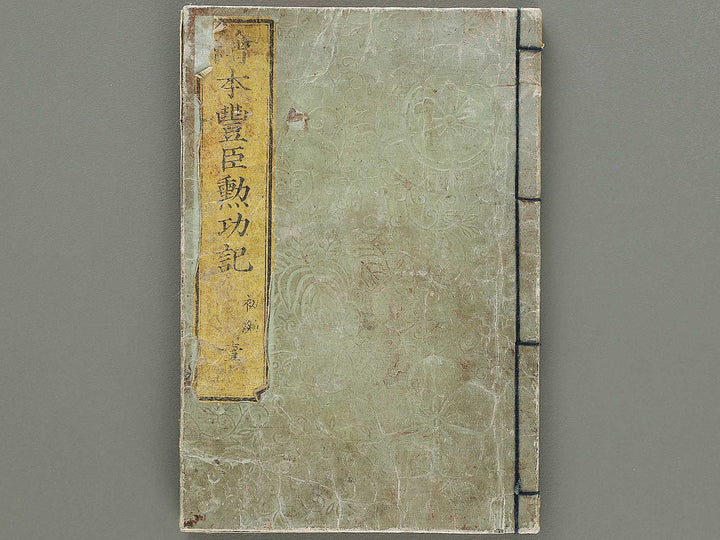 繪本豐臣勲功記
初編
壹